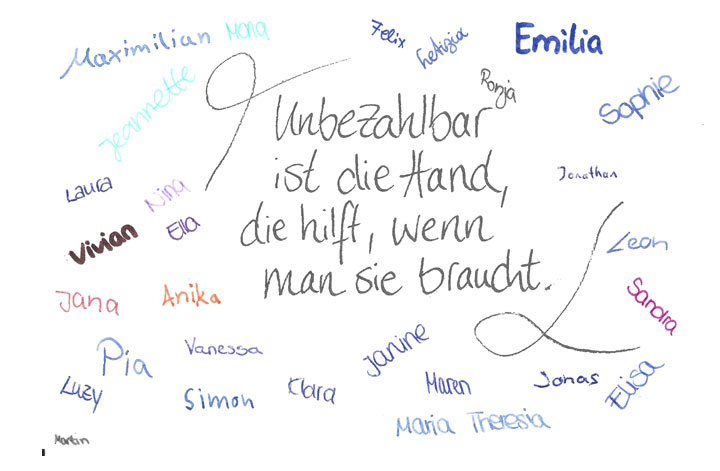 Maximilian
Mona
Felix
Letizia
Emilia
Jeannette
Ronja
Sophie
Unbezahlbar
ist die Hand,
die hilft, wenn
man sie braucht.
Laura
Nina
Jonathan
Vivian
Ella
Leon
Jana
Anika
Sandra
Pia
Vanessa
Janine
Luzy
Simon
Clara
Maren
Jonas
Elisa
Maria Theresia
Martin